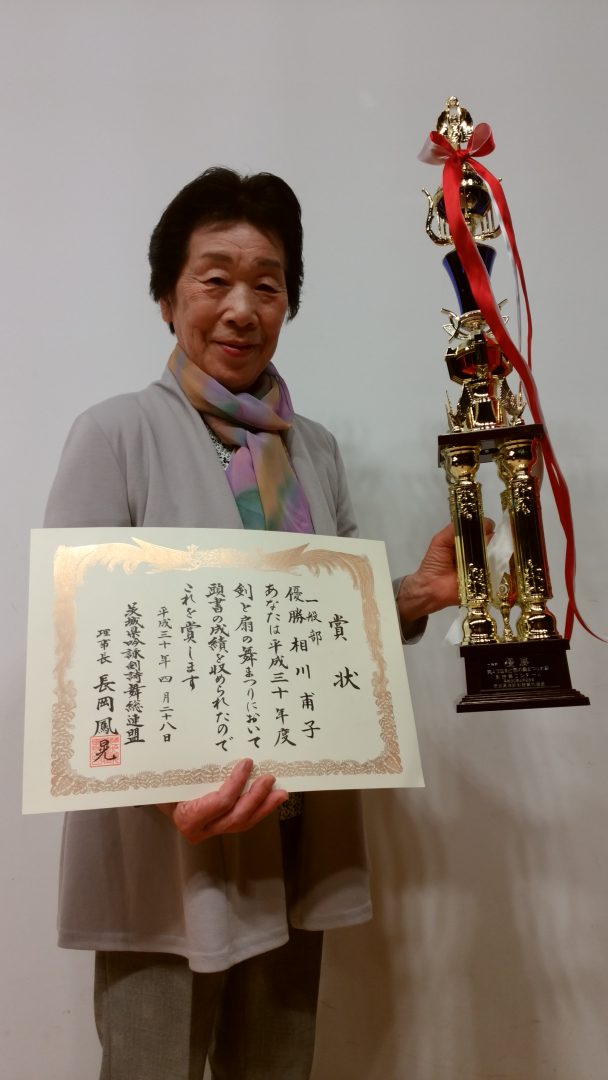 賞状
一般部
優勝 相川甫子
あなたは平成三十年度
剣と扇の舞まつりにおいて
頭書の成績を収められたので
これを賞します
平成三十年四月二十八日
茨城県吟詠剣詩舞総連盟
理事長 長岡鳳晃
優勝